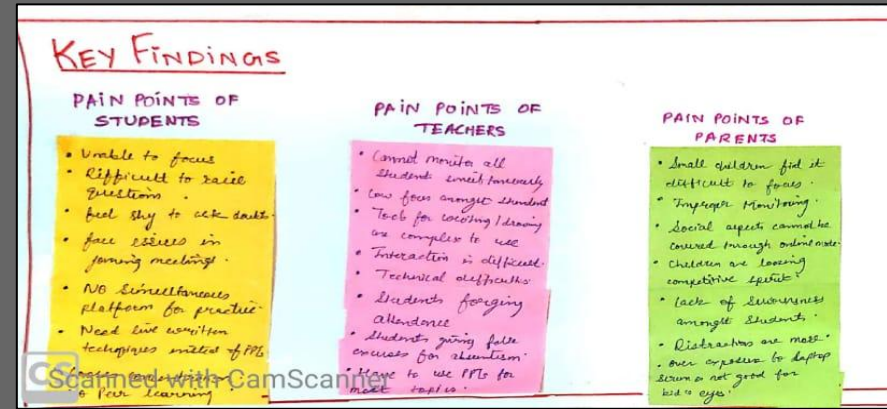 KEY FINDINGS
PAIN POINTS OF
STUDENTS
• Unable to focus
• Difficult to raise
questions.
• feel shy to ask doubts.
• face issues in
joining meetings.
• No Simultaneous
platform for practice.
• Need live written
techniques instead of PPTs
to Peer learning
PAIN POINTS OF
TEACHERS
• Cannot monitor all
students simultaneously
• Low focus amongst student
• Tools for writing / drawing
are complex to use
• Interaction is difficult.
• Technical difficulties
• Students forging
attendance
• Students giving false
excuses for absentism.
• Have to use PPTs for
most topics.
PAIN POINTS OF
PARENTS
• Small children fid it
difficult to focus.
• Improper Monitoring.
• Social aspects cannot be
covered through online mode.
• Children are loosing
competitive spirit.
• lack of seriousness
amongst students.
• Distractions are more.
• over exposure to laptop
screen is not good for
kid's eyes.
CS Scanned with CamScanner